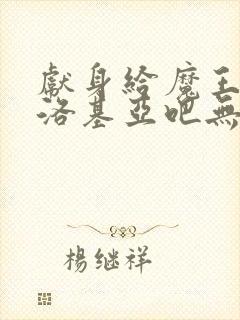 獻身給魔王
洛基亞吧無
楊继祥